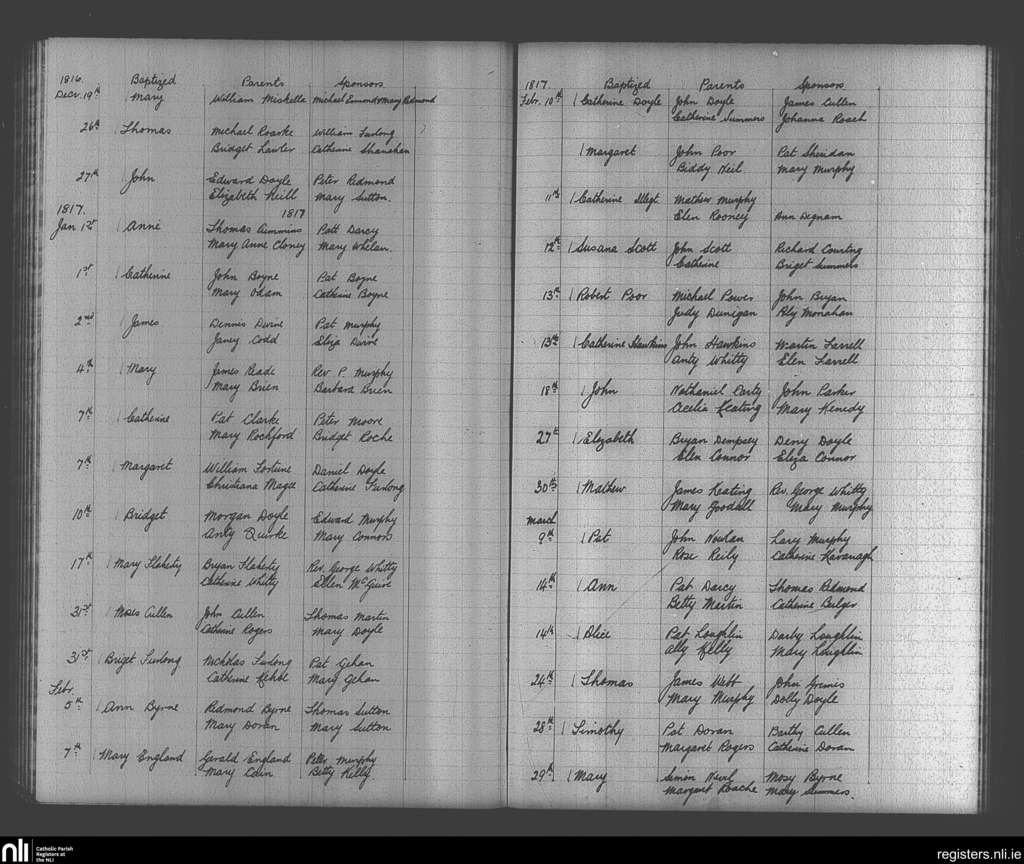 1816. Baptized Parents Sponsors
Decr. 19th Mary William Miskella Michael Edmonds Mary Redmond
26th Thomas Michael Roarke William Furlong
Bridget Lawler Catherine Shanahan
27th John Edward Doyle Peter Redmond
Elizabeth Neill Mary Sutton.
1817. 1817
Jan 1st Anne Thomas Cummins Patt Darcy
Mary Anne Cloney Mary Whelan.
1st Catherine John Boyne Pat Boyne
Mary Odam Catherine Boyne
2nd James Dennis Divine Pat Murphy
Janey Codd Eliza Divine
4th Mary James Beade Rev P. Murphy
Mary Brien Barbara Brien
7th Catherine Pat Clarke Peter Moore
Mary Rochford Bridget Roche
7th Margaret William Fortune Daniel Doyle
Christiana Magee Catherine Furlong
10th Bridget Morgan Doyle Edward Murphy
Anty Quirke Mary Connors
17th Mary Flaherty Bryan Flaherty Rev. George Whitty
Catherine Whitty Ellen McGuire
31st Moses Cullen John Cullen Thomas Martin
Catherine Rogers Mary Doyle
31st Briget Furlong Nicholas Furlong Pat Gehan
Catherine Kehoe Mary Gehan
Febr.
5th Ann Byrne Redmond Byrne Thomas Sutton
Mary Doran Mary Sutton
7th Mary England Gerald England Peter Murphy
Mary Cain Betty Kelly
1817. Baptized Parents Sponsors
Febr. 10th Catherine Doyle John Doyle James Cullen
Catherine Summers Johanna Roach
Margaret John Poor Pat Sheridan
Biddy Neil Mary Murphy
11th Catherine Illegt Mathew Murphy
Elen Rooney Ann Degnam
12th Susana Scott John Scott Richard Courtney
Catherine Briget Summers
13th Robert Poor Michael Power John Bryan
Judy Dunigan Ally Monahan
13th Catherine Hawkins John Hawkins Martin Farrell
Anty Whitty Elen Farrell
18th John Nathaniel Carty John Parker
Cecelia Keating Mary Kenedy
27th Elizabeth Bryan Dempsey Deny Doyle
Elen Connor Eliza Connor
30th Mathew James Keating Rev. George Whitty
Mary Goodall Mary Murphy
March
9th Pat John Nowlan Lary Murphy
Rose Reily Catherine Kavanagh
14th Ann Pat Darcy Thomas Redmond
Betty Martin Catherine Bulger
14th Alice Pat Loughlin Darby Loughlin
Ally Kelly Mary Loughlin
24th Thomas James Webb John Grimes
Mary Murphy Dolly Doyle
28th Timothy Pat Doran Barthy Cullen
Margaret Rogers Catherine Doran
29th Mary Simon Nevil Mosy Byrne
Margaret Roache Mary Summers.
nli Catholic Parish
Registers at
the NLI
registers.nli.ie